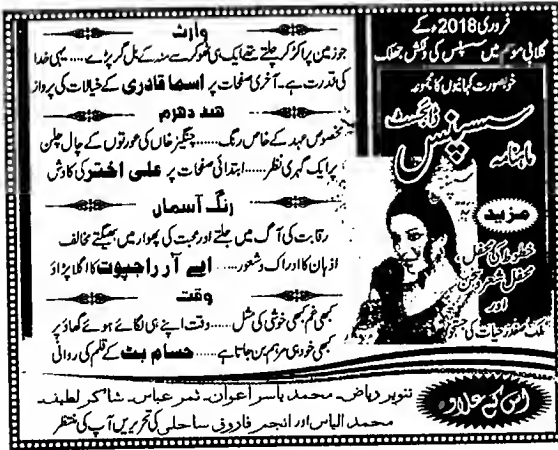 فروری 2018ء کے
گلابی موسم میں سسپنس کی دلکش جھلک
خوبصورت کہانیوں کا مجموعہ
سسپنس
ڈائجسٹ
ماہنامہ
مزید
خطوط کی محفل
محفل شعر و سخن
اور
ملک صفدر حیات کی جستجو
وارث
جو زمین پر اکڑ کر چلتے تھے ایک ہی ٹھوکر سے منہ کے بل گر پڑے ..... یہی خدا
کی قدرت ہے۔ آخری صفحات پر اسما قادری کے خیالات کی پرواز
ھند دھرم
مخصوص عہد کے خاص رنگ ..... چنگیز خاں کی عورتوں کے چال چلن
پر ایک گہری نظر ...... ابتدائی صفحات پر علی اختر کی کاوش
رنگ آسماں
رقابت کی آگ میں جلتے اور محبت کی پھوار میں بھیگتے مخالف
اذہان کا ادراک و شعور ..... ایے آر راجپوت کا اگلا پڑاؤ
وقت
کبھی غم کبھی خوشی کی مثل ..... وقت اپنے ہی لگائے ہوئے گھاؤ پر
کبھی خود ہی مرہم بن جاتا ہے ..... حسام بٹ کے قلم کی روانی
اس کے علاوہ
تنویر ریاض۔ محمد یاسر اعوان۔ ثمر عباس۔ شاکر لطیف۔
محمد الیاس اور انجم فاروق ساحلی کی تحریریں آپ کی منتظر